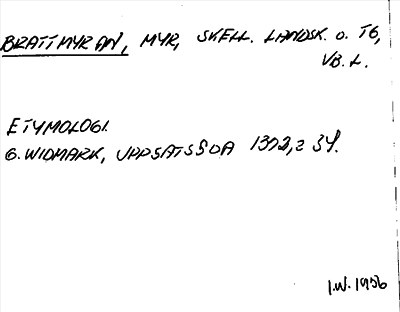 BRATTMYRAN, MYR, SKELL. LANDSK. O. TG,
VB. L.
ETYMOLOGI.
G. WIDMARK, UPPSATS SOA 1392, S 34.
I.W. 1956